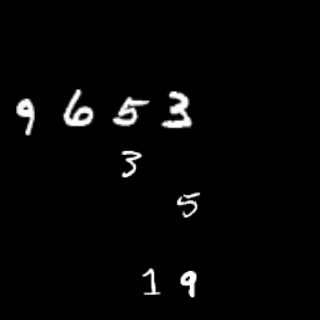 9 6 5 3
3
5
1 9